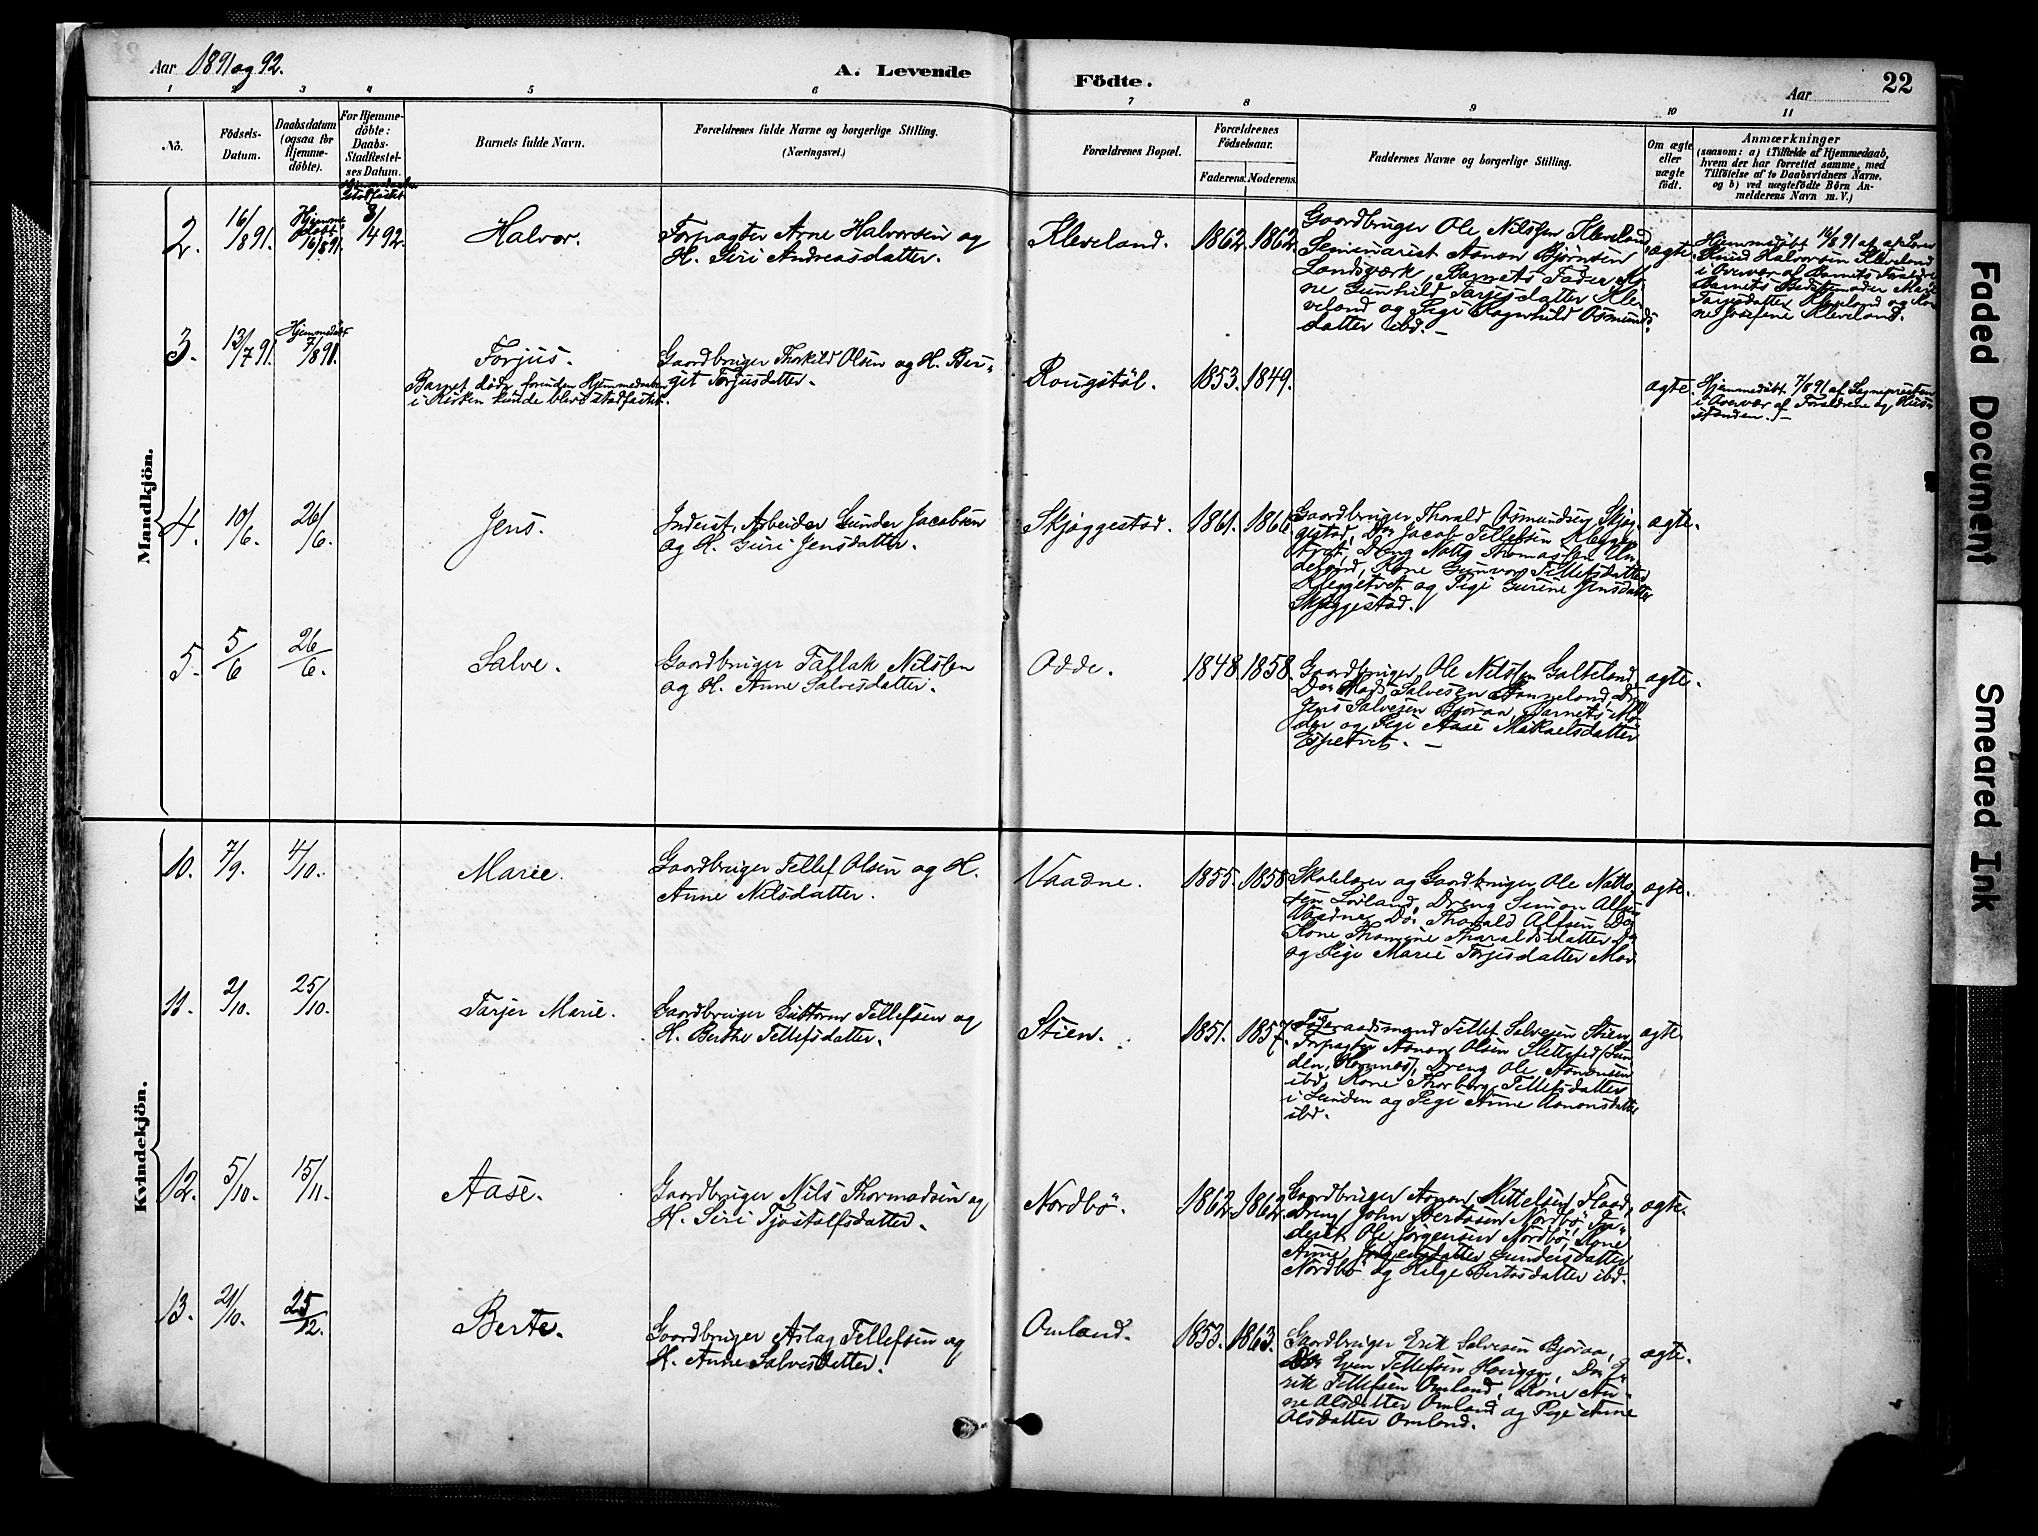 Aar 1891 og 92.
A. Levende Födte.
Aar
22
1 2 3 4 5 6 7 8 9 10 11
No.
Födsels-
Datum.
Daabsdatum
(ogsaa for
Hjemme-
döbte).
For Hjemme-
döbte:
Daabs-
Stadfæstel-
ses Datum.
Barnets fulde Navn.
Forældrenes fulde Navne og borgerlige Stilling.
(Næringsvei.)
Forældrenes Bopæl.
Forældrenes
Födselsaar.
Faderens. Moderens.
Faddernes Navne og borgerlige Stilling.
Om ægte
eller
uægte
födt.
Anmærkninger
(saasom: a) i Tilfælde af Hjemmedaab,
hvem der har forrettet samme, med
Tilföielse af to Daabsvidners Navne,
og b) ved uægtefödte Börn An-
melderens Navn m. V.)
Mandkjön.
2.
16/8 91.
Hjemme
döbt
16/8 91.
3/4 92.
Halvor.
Forpagter Arne Halvorsen og
H. Siri Andreasdatter.
Kleveland.
1862. 1862.
Gaardbruger Ole Nilssen Kleveland,
Seminarist Aanon Björnsen
Landsværk, Barnets Fader, Ko-
ne Gunhild Tarjesdatter Kle-
veland og Pige Ragnhild Osmunds-
datter ibd. –
ægte.
Hjemmedöbt 16/8 91 af Lærer
Knud Halvorsen Kleveland
i Overvær af Barnets Forældre
Barnets Bedstemoder Mari
Tarjesdatter Kleveland og Ko-
ne Josefine Kleveland.
3.
13/7 91.
Hjemmedöbt
7/8 91.
Torjus.
Barnet döde, forinden Hjemmedaaben
i Kirken kunde blive stadfæstet.
Gaardbruger Thorkild Olsen og H. Ber-
git Torjusdatter.
Rougstöl.
1853. 1849.
ægte.
Hjemmedöbt 7/8 91 af Sognepresten
i Overvær af Forældrene og Hus-
standen. –
4.
10/6.
26/6.
Jens.
Indust. Arbeider Gunder Jacobsen
og H. Guri Jensdatter.
Skjæggestad.
1861. 1866.
Gaardbruger Thorald Osmundsen Skjæg-
gestad, Do Jacob Tellefsen Klegge-
tvet, Dreng Notto Thomassen Un-
deland, Kone Gunvor Tellefsdatter
Kleggetvet og Pige Gurine Jensdatter
Skjæggestad.
ægte.
5.
5/6
26/6.
Salve.
Gaardbruger Tallak Nilssen
og H. Anne Salvesdatter.
Odde.
1848 1858.
Gaardbruger Ole Nilssen Galteland,
Do Mads Salvesen Aaneland, Do
Jens Salvesen Bjoraa, Barnets Mo-
der og Pige Aase Mikaelsdatter
Espetvet. –
ægte.
Kvindekjön.
10.
7/9.
4/10.
Marie.
Gaardbruger Tellef Olsen og H.
Anne Nilsdatter.
Vaadne.
1855. 1858.
Skolelærer og Gaardbruger Ole Notto-
sen Loiland, Dreng Simon Alfsen
Vaadne, Do Tharald Alfsen Do,
Kone Thomine Tharaldsdatter Do
og Pige Marie Torjesdatter Mor.
ægte.
11.
2/10.
25/10.
Tarjer Marie.
Gaardbruger Guttorm Tellefsen og
H. Berthe Tellefsdatter.
Stien.
1851. 1857.
Föderaadsmand Tellef Salvesen Stien,
Forpagter Aanon Olsen Slettefed (Sun-
den, Hornnes), Dreng Ole Aanonsen
ibd, Kone Thorborg Tellefsdatter
i Sunden og Pige Anne Aanonsdatter
ibd.
ægte.
12.
5/10.
15/11.
Aase.
Gaardbruger Nils Thormodsen og
H. Siri Tjostolfsdatter.
Nordbö.
1862. 1862.
Gaardbruger Aanon Kittelsen Flaad,
Dreng John Bertosen Nordbö, In-
derst Ole Jörgensen Nordbö, Kone
Anne Jörgensdatter Gundersdatter
Nordbö og Helge Bertosdatter ibd.
ægte.
13.
21/10.
25/12.
Berte.
Gaardbruger Aslag Tellefsen og
H. Anne Salvesdatter.
Omland.
1853. 1863.
Gaardbruger Erik Salvesen Bjoraa,
Do Even Tellefsen Haugen, Do E-
rik Tellefsen Omland, Kone An-
ne Olsdatter Omland og Pige Anne
Olsdatter Omland.
ægte.
Faded Document
Smeared Ink